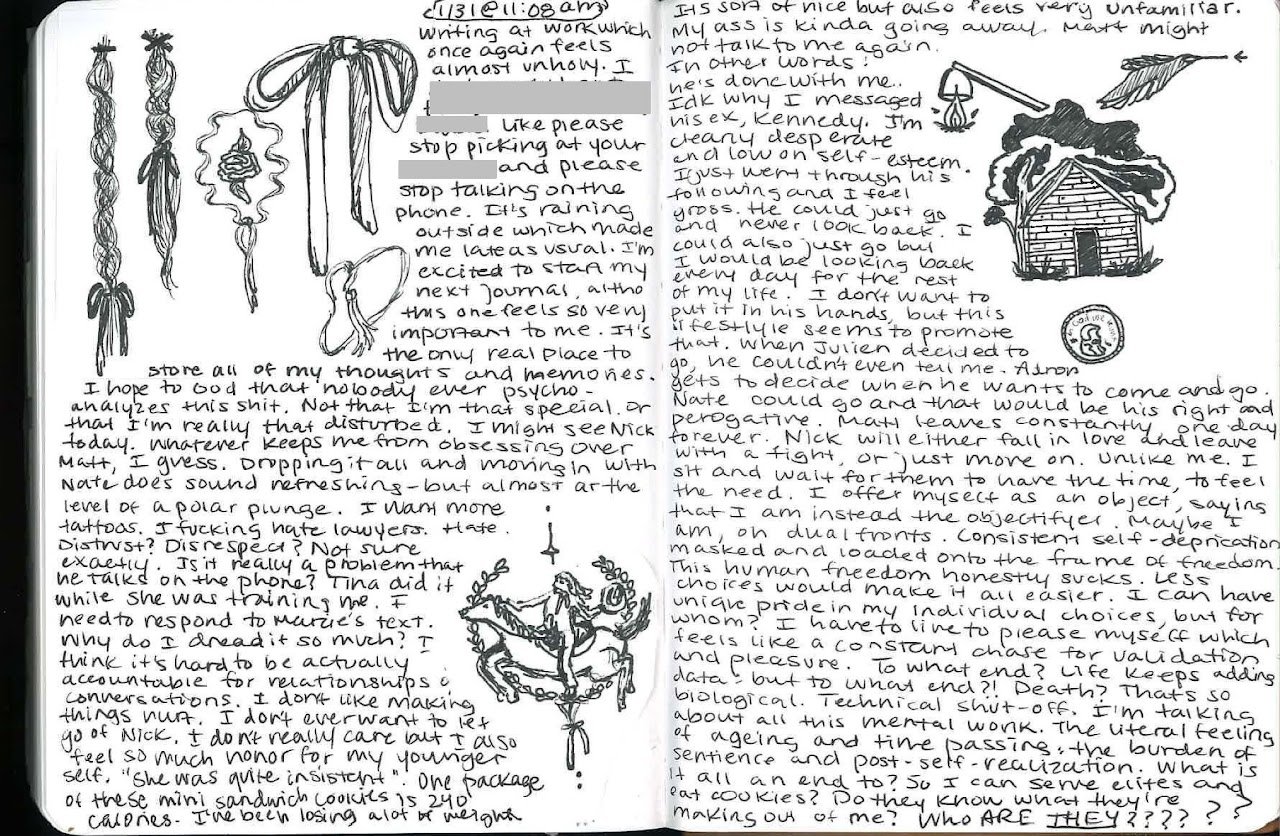 1/31 @ 11:08am
Writing at work which
once again feels
almost unholy. I
like please
stop picking at your
and please
stop talking on the
phone. It's raining
outside which made
me late as usual. I'm
excited to start my
next journal, altho
this one feels so very
important to me. It's
the only real place to
store all of my thoughts and memories.
I hope to God that nobody ever psycho-
analyzes this shit. Not that I'm that special. Or
that I'm really that disturbed. I might see Nick
today. Whatever keeps me from obsessing over
Matt, I guess. Dropping it all and moving in with
Nate does sound refreshing - but almost at the
level of a polar plunge. I want more
tattoos. I fucking hate lawyers. Hate.
Distrust? Disrespect? Not sure
exactly. Is it really a problem that
he talks on the phone? Tina did it
while she was training me. I
need to respond to Marcie's text.
Why do I dread it so much? I
think it's hard to be actually
accountable for relationships &
conversations. I don't like making
things hurt. I don't ever want to let
go of Nick. I don't really care but I also
feel so much honor for my younger
self. "She was quite insistent". One package
of these mini sandwich cookies is 240
calories. I've been losing a lot of weight
It's sort of nice but also feels very unfamiliar.
My ass is kinda going away. Matt might
not talk to me again.
In other words:
he's done with me..
Idk why I messaged
his ex, Kennedy. I'm
clearly desperate
and low on self-esteem.
I just went through his
following and I feel
gross. He could just go
and never look back. I
could also just go but
I would be looking back
every day for the rest
of my life. I don't want to
put it in his hands, but this
lifestlyle seems to promote
that. When Julien decided to
go, he couldn't even tell me. Adron
gets to decide when he wants to come and go.
Nate could go and that would be his right and
perogative. Matt leaves constantly, one day
forever. Nick will either fall in love and leave
with a fight, or just move on. Unlike me. I
sit and wait for them to have the time, to feel
the need. I offer myself as an object, saying
that I am instead the objectifyer. Maybe I
am, on dual fronts. Consistent self-deprication
masked and loaded onto the frame of freedom.
This human freedom honestly sucks. Less
choices would make it all easier. I can have
unique pride in my individual choices, but for
whom? I have to live to please myself which
feels like a constant chase for validation
and pleasure. To what end? Life keeps adding
data - but to what end?! Death? That's so
biological. Technical shut-off. I'm talking
about all this mental work. The literal feeling
of ageing and time passing, the burden of
sentience and post-self-realization. What is
it all an end to? So I can serve elites and
eat cookies? Do they know what they're
making out of me? Who ARE THEY?????
???